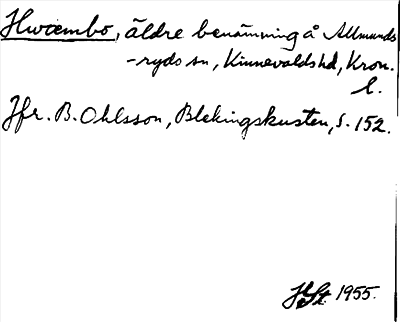 Hwæmbo, äldre benämning å Allmunds
-ryds sn, Kinnevaldshd, Kron.
l.
Jfr. B. Ohlsson, Blekingskusten, s. 152.
HSt. 1955.